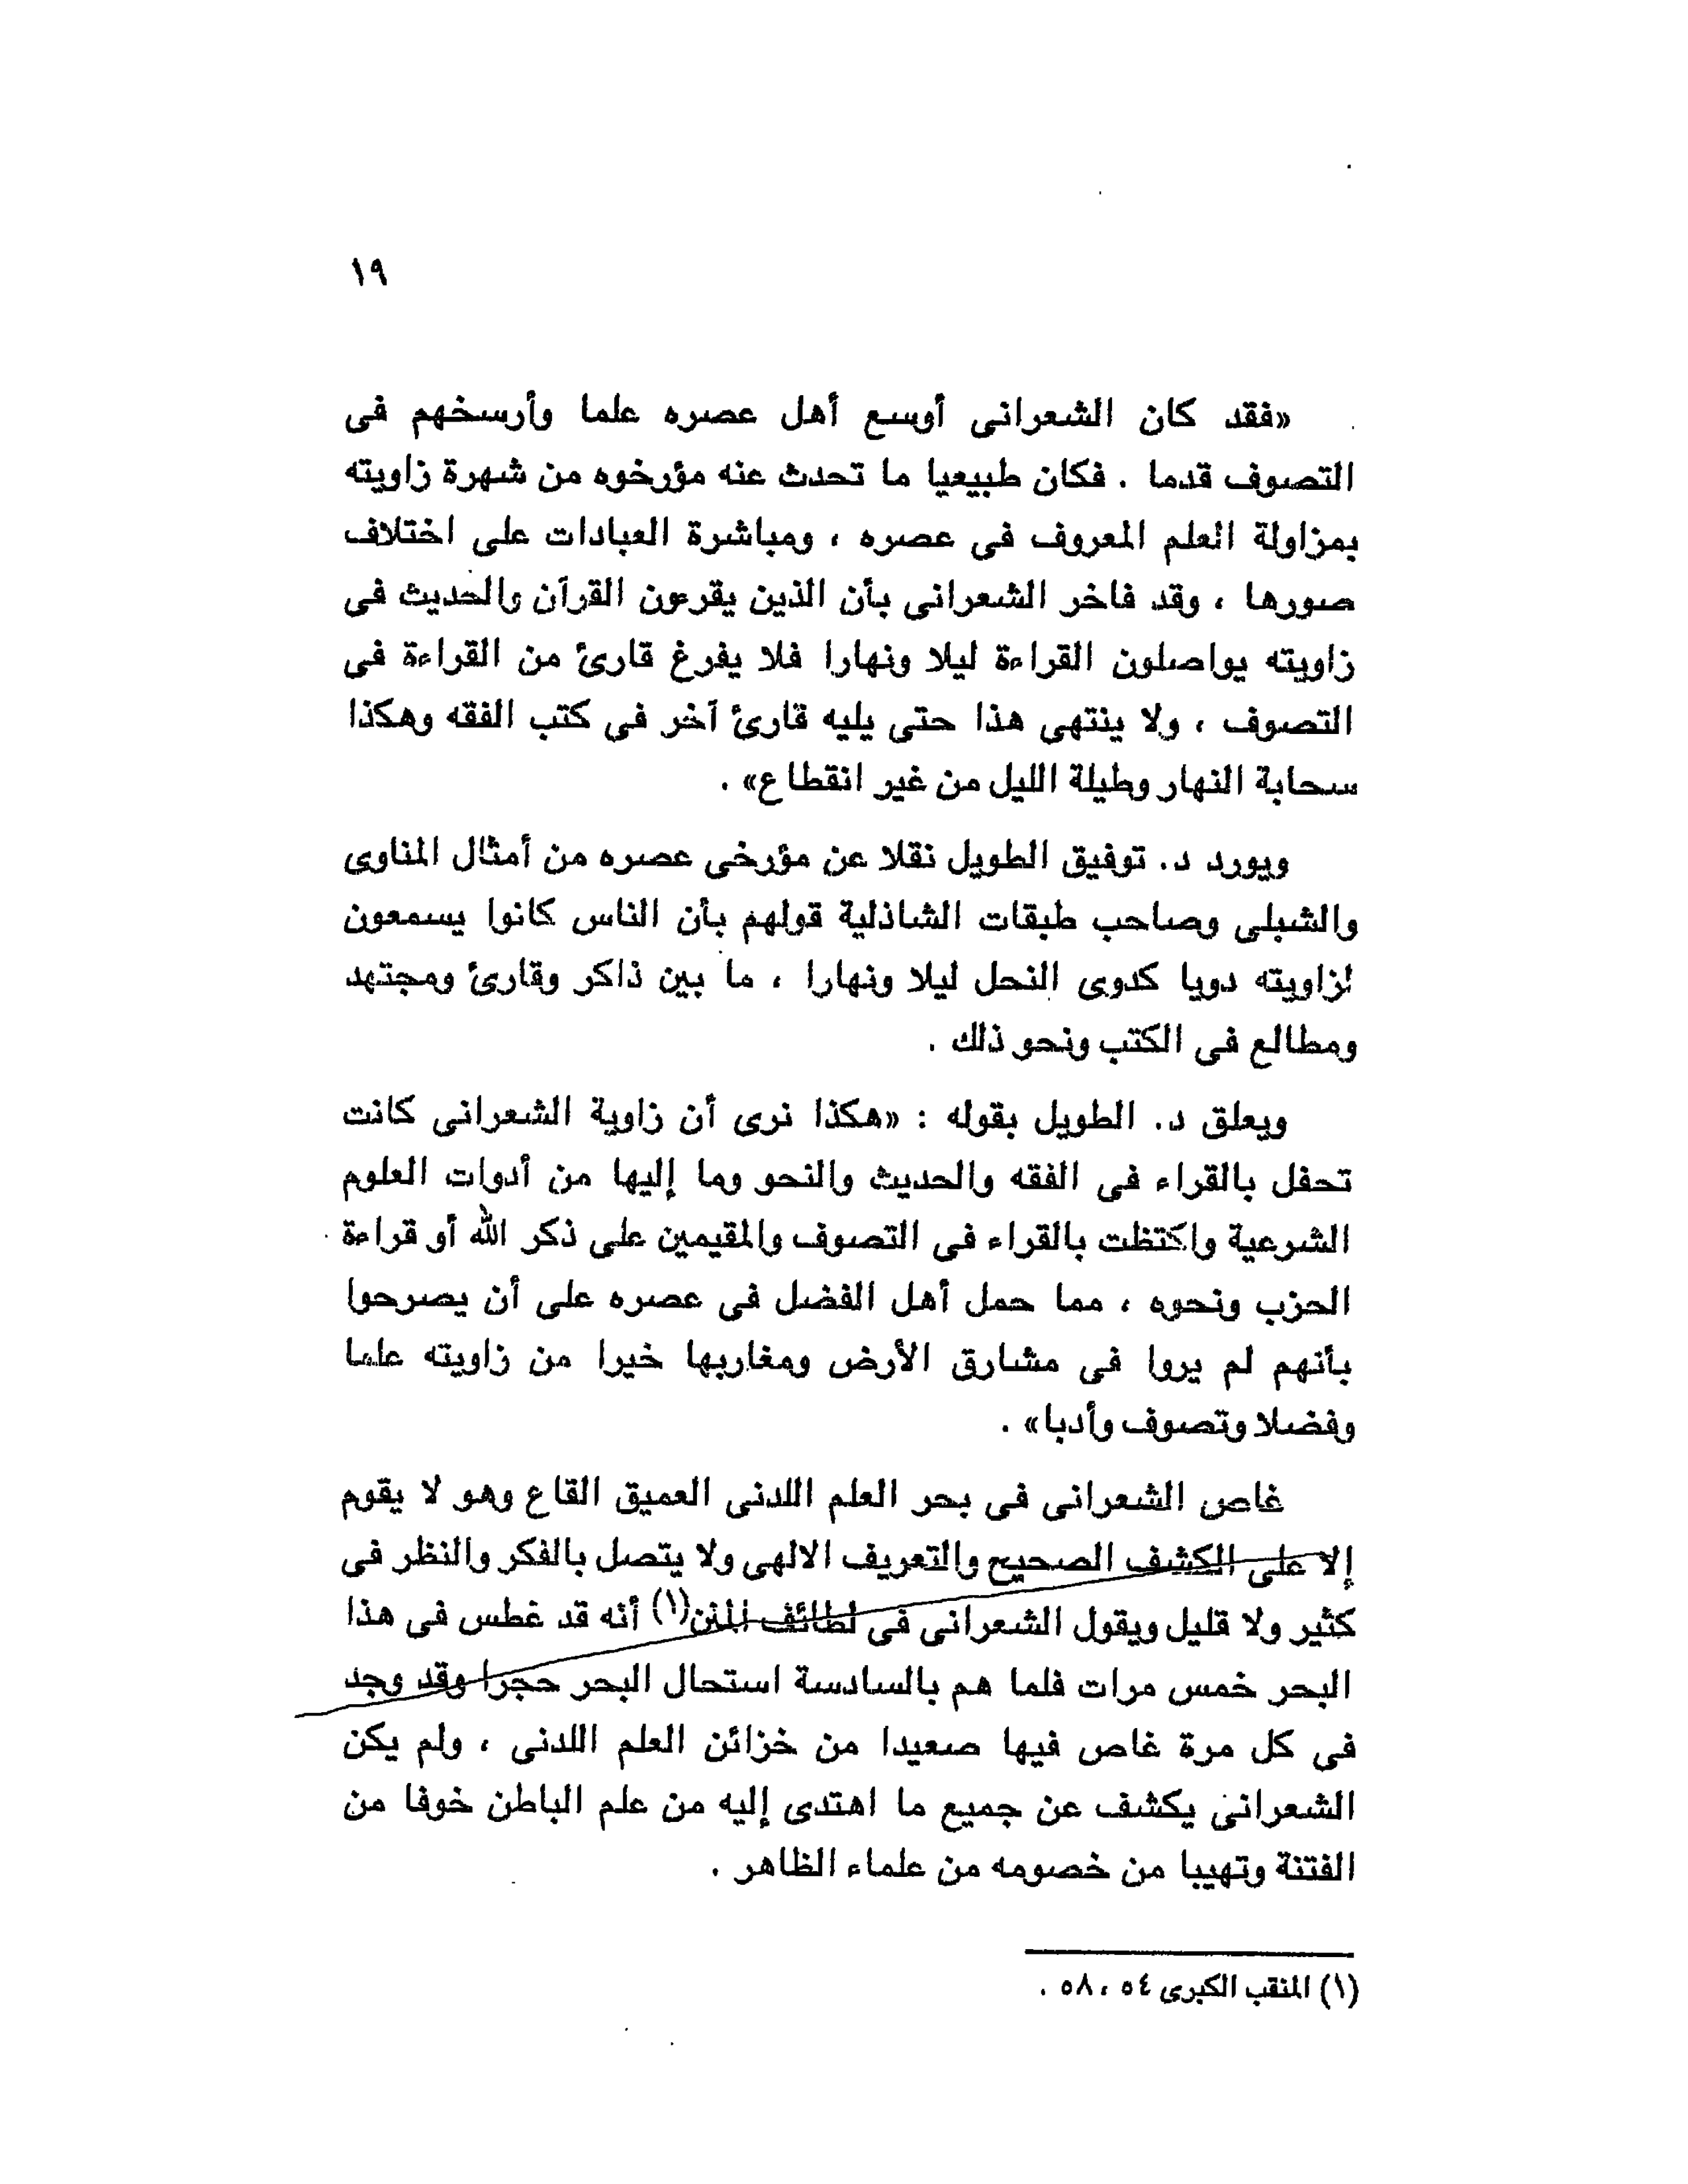 ١٩
«فقد كان الشعرانى أوسع أهل عصره علما وأرسخهم فى
التصوف قدما . فكان طبيعيا ما تحدث عنه مؤرخوه من شهرة زاويته
بمزاولة العلم المعروف فى عصره ، ومباشرة العبادات على اختلاف
صورها ، وقد فاخر الشعرانى بأن الذين يقرءون القرآن والحديث فى
زاويته يواصلون القراءة ليلا ونهارا فلا يفرغ قارئ من القراءة فى
التصوف ، ولا ينتهى هذا حتى يليه قارئ آخر فى كتب الفقه وهكذا
سحابة النهار وطيلة الليل من غير انقطاع» .
ويورد د. توفيق الطويل نقلا عن مؤرخى عصره من أمثال المناوى
والشبلى وصاحب طبقات الشاذلية قولهم بأن الناس كانوا يسمعون
لزاويته دويا كدوى النحل ليلا ونهارا ، ما بين ذاكر وقارئ ومجتهد
ومطالع فى الكتب ونحو ذلك .
ويعلق د. الطويل بقوله : «هكذا نرى أن زاوية الشعرانى كانت
تحفل بالقراء فى الفقه والحديث والنحو وما إليها من أدوات العلوم
الشرعية واكتظت بالقراء فى التصوف والمقيمين على ذكر الله أو قراءة
الحزب ونحوه ، مما حمل أهل الفضل فى عصره على أن يصرحوا
بأنهم لم يروا فى مشارق الأرض ومغاربها خيرا من زاويته علما
وفضلا وتصوف وأدبا» .
غاص الشعرانى فى بحر العلم اللدنى العميق القاع وهو لا يقوم
إلا على الكشف الصحيح والتعريف الالهى ولا يتصل بالفكر والنظر فى
كثير ولا قليل ويقول الشعرانى فى لطائف المنن(١) أنه قد غطس فى هذا
البحر خمس مرات فلما هم بالسادسة استحال البحر حجرا وقد وجد
فى كل مرة غاص فيها صعيدا من خزائن العلم اللدنى ، ولم يكن
الشعرانى يكشف عن جميع ما اهتدى إليه من علم الباطن خوفا من
الفتنة وتهيبا من خصومه من علماء الظاهر .
(١) المنقب الكبرى ٥٤ ، ٥٨ .